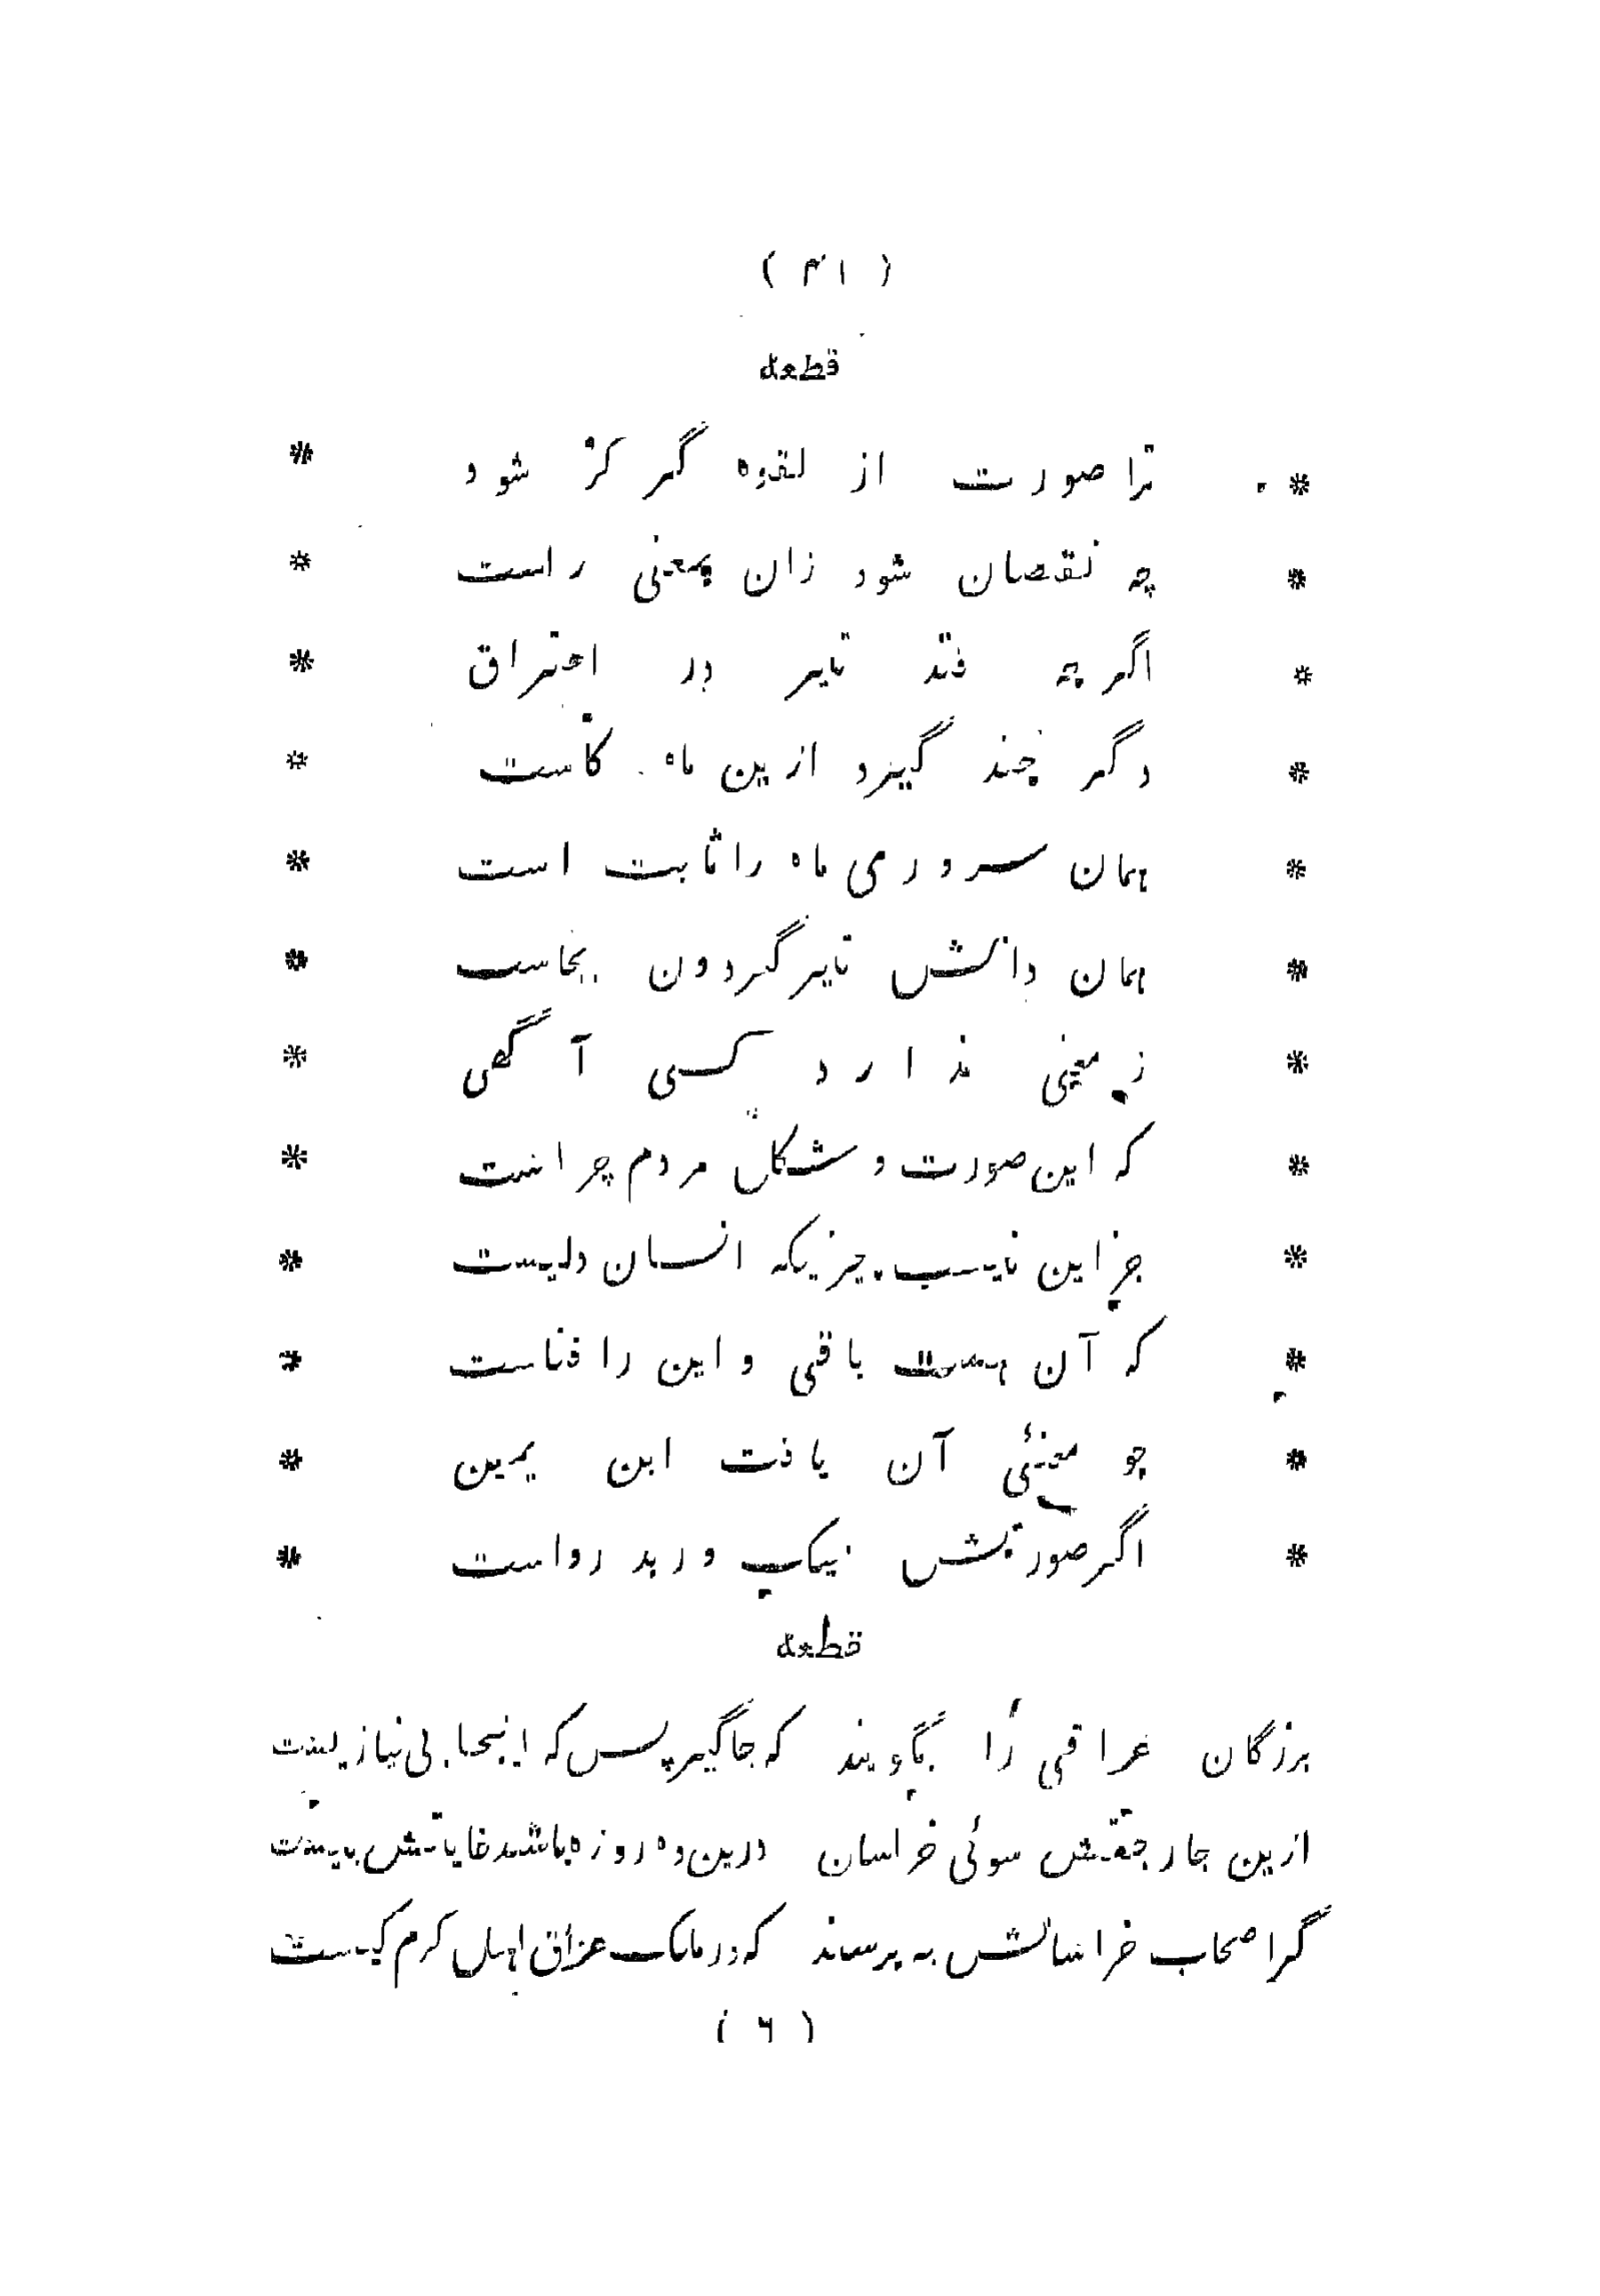 ( ۴۱ )
قطعه
* ترا صورت از لقوه گر کژ شود *
* چه نقصان شود زان بمعنی راست *
* اگرچه فتد تیر در احتراق *
* وگر چند گیرد ازین ماه کاست *
* همان سروری ماه را ثابت است *
* همان دانش تیر گردون بجاست *
* ز معنی ندارد کسی آگهی *
* که این صورت و شکل مردم چراست *
* جز این نیست چیزیکه انسان دلیست *
* که آن هست باقی و این را فناست *
* چو معنئی آن یافت ابن یمین *
* اگر صورتش نیک ور بد رواست *
قطعه
بزرگان عراقی را بگویند که جاگیر پس که اینجا بی نیازیست
ازین جا رجعتش سوئی خراسان درین ده روزه باشد غایتش بیست
گر اصحاب خراسانش به پرسند که در ملک عراق اهل کرم کیست
( ٦ )